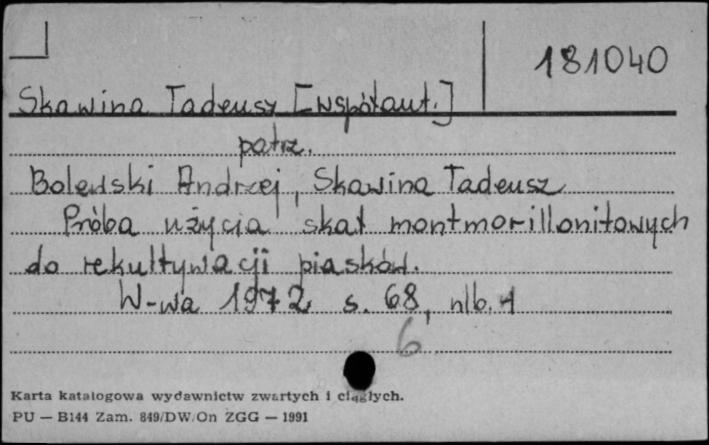 181040
Skawina Tadeusz [współaut.]
patrz.
Bolewski Andrzej, Skawina Tadeusz
Próba użycia skał montmorillonitowych
do rekultywacji piasków.
W-wa 1972 s. 68, nlb. 1
6
Karta katalogowa wydawnictw zwartych i ciągłych.
PU — B144 Zam. 849/DW/On ZGG — 1991